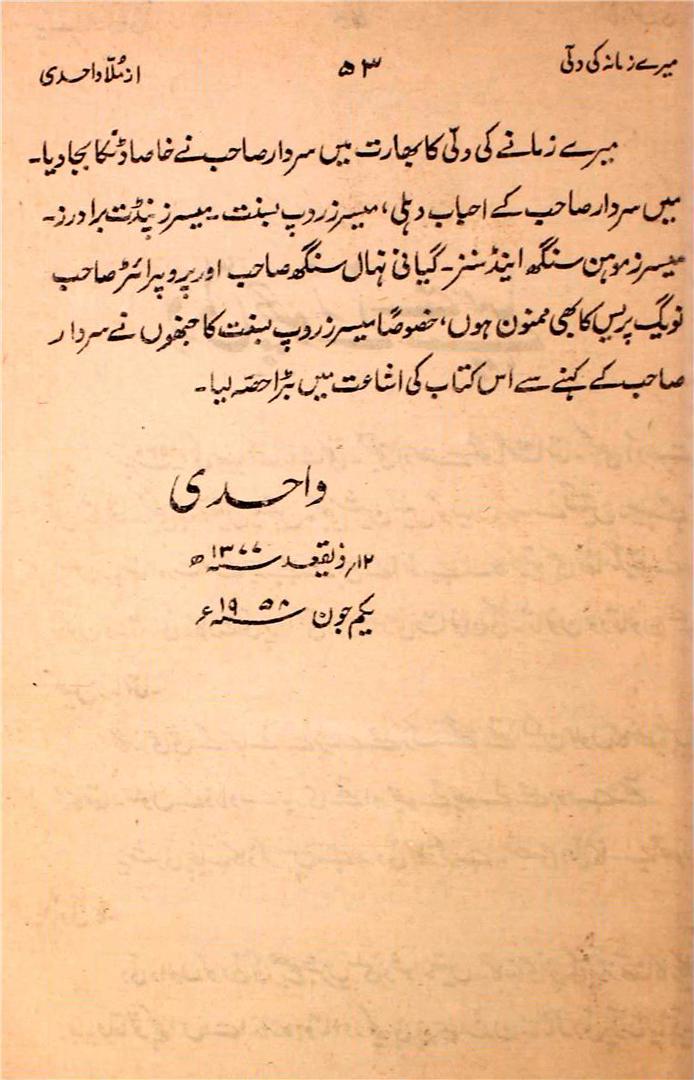 میرے زمانہ کی دلّی
۵۳
از مُلّا واحدی
میرے زمانے کی دلّی کا بھارت میں سردار صاحب نے خاصا ڈنکا بجا دیا۔
میں سردار صاحب کے احباب دہلی، میسرز روپ بسنت۔ میسرز پنڈت برادرز۔
میسرز موہن سنگھ اینڈ سنز۔ گیانی نہال سنگھ صاحب اور پروپرائٹر صاحب
نویگ پریس کا بھی ممنون ہوں، خصوصًا میسرز روپ بسنت کا جنھوں نے سردار
صاحب کے کہنے سے اس کتاب کی اشاعت میں بڑا حصّہ لیا۔
واحدی
۱۲؍ ذیقعد سنہ ۱۳۷۷ھ
یکم جون سنہ ۱۹۵۸ء